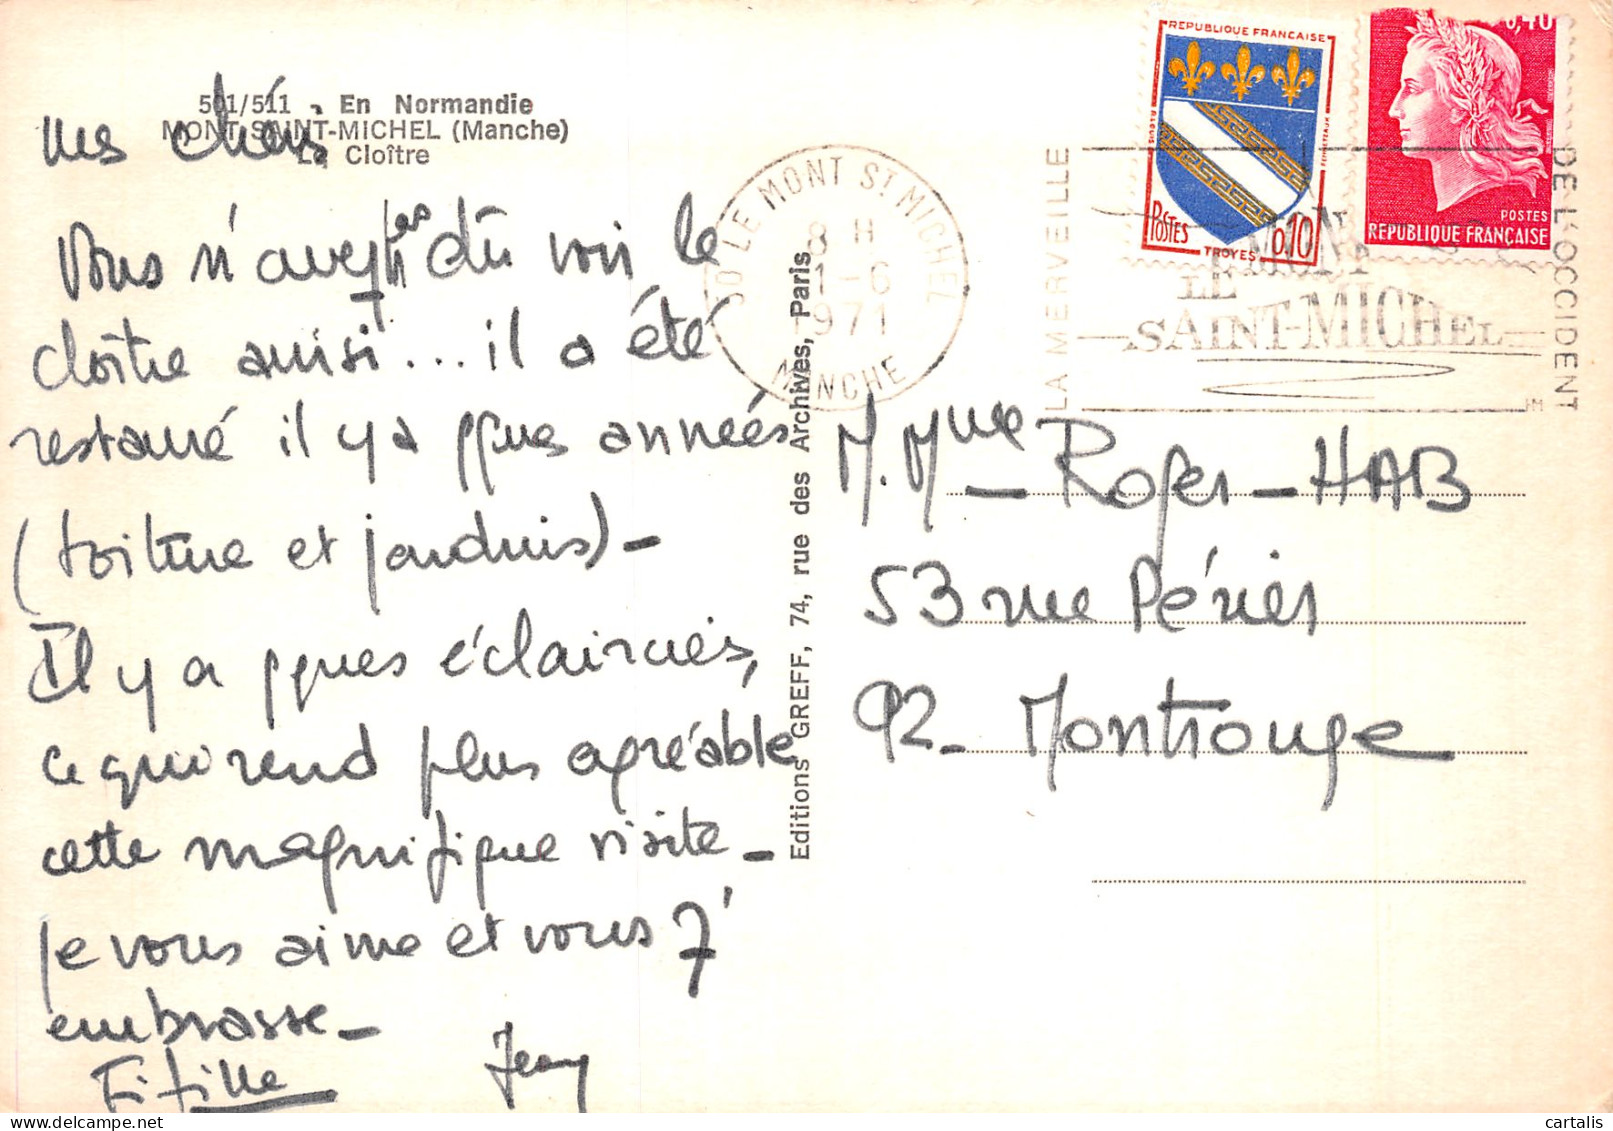 501/511 - En Normandie
MONT-SAINT-MICHEL (Manche)
Le Cloître
mes chéris
Vous n'avez pas dû voir le
cloître ainsi... il a été
restauré il y a qques années
(toiture et jardins) -
Il y a qques éclaircies,
ce qui rend plus agréable
cette magnifique visite -
je vous aime et vous
embrasse -
Fifille Jeany
Editions GREFF, 74, rue des Archives, Paris
50 LE MONT ST MICHEL
8 H
1-6
1971
MANCHE
LA MERVEILLE
LE MONT
SAINT-MICHEL
DE L'OCCIDENT
REPUBLIQUE FRANCAISE
POSTES
TROYES
0,10
0,40
POSTES
REPUBLIQUE FRANÇAISE
M. Mme - Roger - HAB
53 rue Périer
92 - Montrouge
cartalis